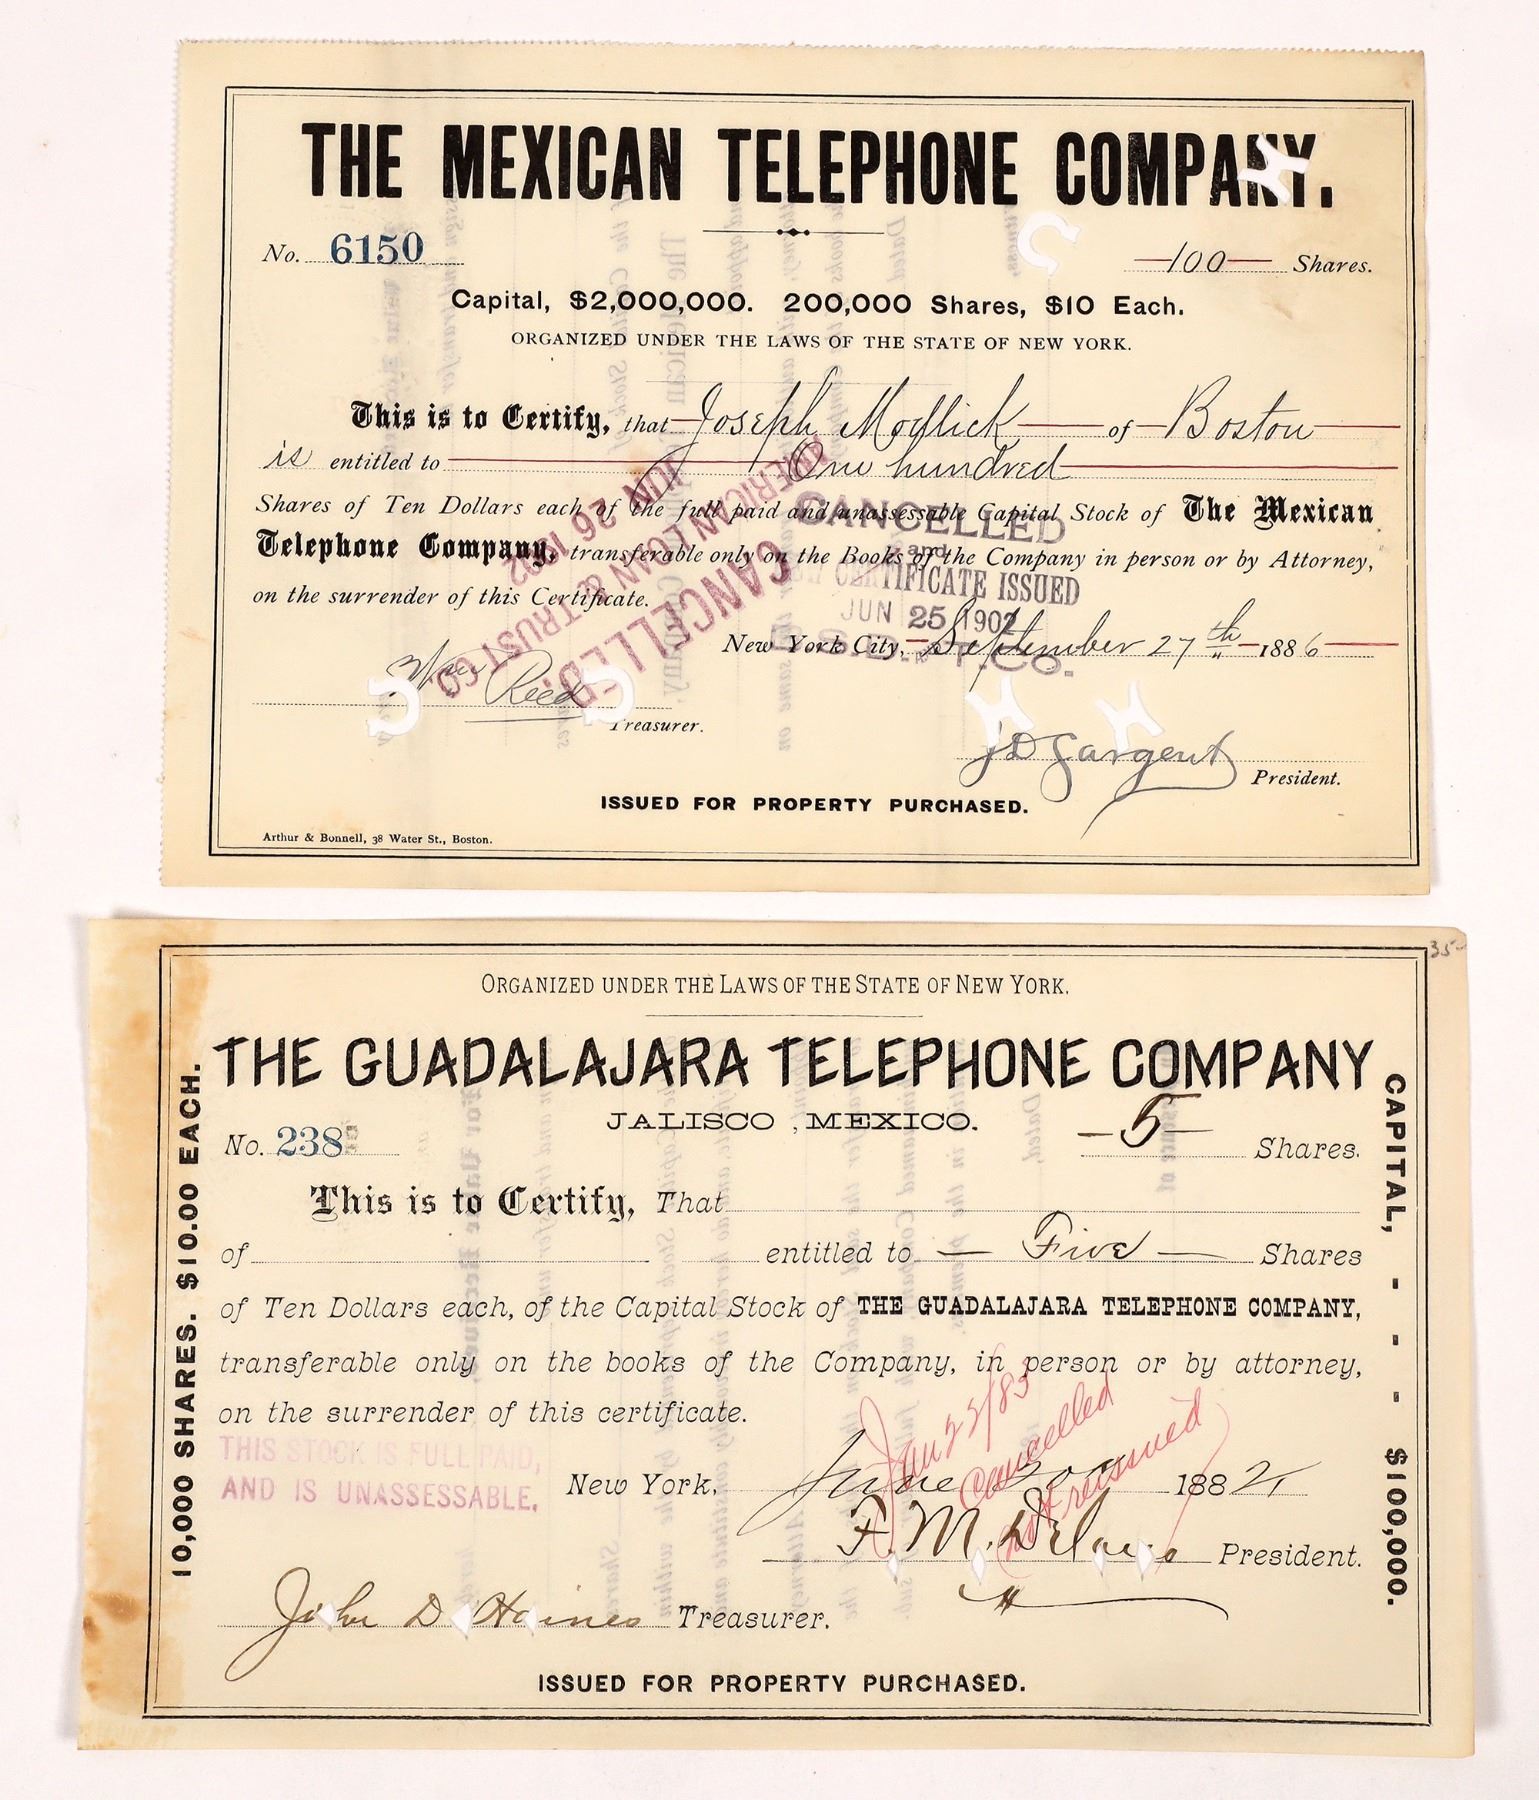 THE MEXICAN TELEPHONE COMPANY.
No. 6150
100 Shares.
Capital, $2,000,000. 200,000 Shares, $10 Each.
ORGANIZED UNDER THE LAWS OF THE STATE OF NEW YORK.
This is to Certify, that Joseph Modlick of Boston
is entitled to One hundred
Shares of Ten Dollars each of the full paid and unassessable Capital Stock of The Mexican
Telephone Company, transferable only on the Books of the Company in person or by Attorney,
on the surrender of this Certificate.
CANCELLED
and
CERTIFICATE ISSUED
JUN 25 1902
T. Co.
CANCELLED.
AMERICAN LOAN & TRUST CO
JUN 26 1902
New York City, September 27th 1886
Wm Reed
Treasurer.
J D Sargent
President.
ISSUED FOR PROPERTY PURCHASED.
Arthur & Bonnell, 38 Water St., Boston.
35-
ORGANIZED UNDER THE LAWS OF THE STATE OF NEW YORK.
THE GUADALAJARA TELEPHONE COMPANY
JALISCO, MEXICO.
No. 238
5 Shares.
This is to Certify, That
of entitled to Five Shares
of Ten Dollars each, of the Capital Stock of THE GUADALAJARA TELEPHONE COMPANY,
transferable only on the books of the Company, in person or by attorney,
on the surrender of this certificate.
THIS STOCK IS FULL PAID,
AND IS UNASSESSABLE.
New York, June 1882
Jan 22/83
Cancelled
not reissued
F. M. Delano President.
John D Haines Treasurer.
ISSUED FOR PROPERTY PURCHASED.
10,000 SHARES. $10.00 EACH.
CAPITAL, - - - $100,000.